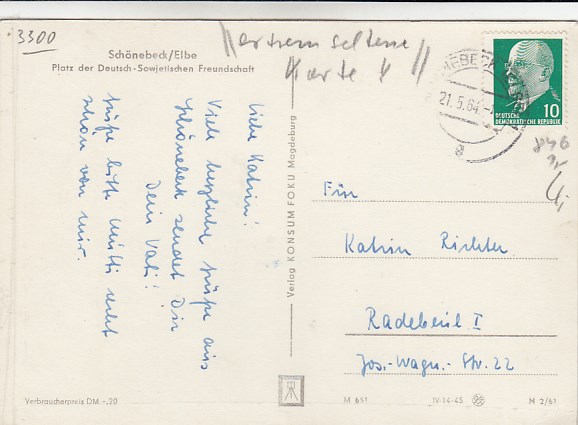 3300
Schönebeck/Elbe
Platz der Deutsch-Sowjetischen Freundschaft
// extrem seltene
Karte // 
Liebe Katrin!
Viele herzliche Grüße aus
Schönebeck sendet Dir
Dein Vati!
Grüße bitte Mutti recht
schön von mir.
Verlag KONSUM FOKU Magdeburg
21.5.64
a
10
DEUTSCHE
DEMOKRATISCHE REPUBLIK
846
Für
Katrin Richter
Radebeul I
Jos.-Wagn.-Str. 22
Verbraucherpreis DM -,20
M 651
IV-14-45
M 2/61